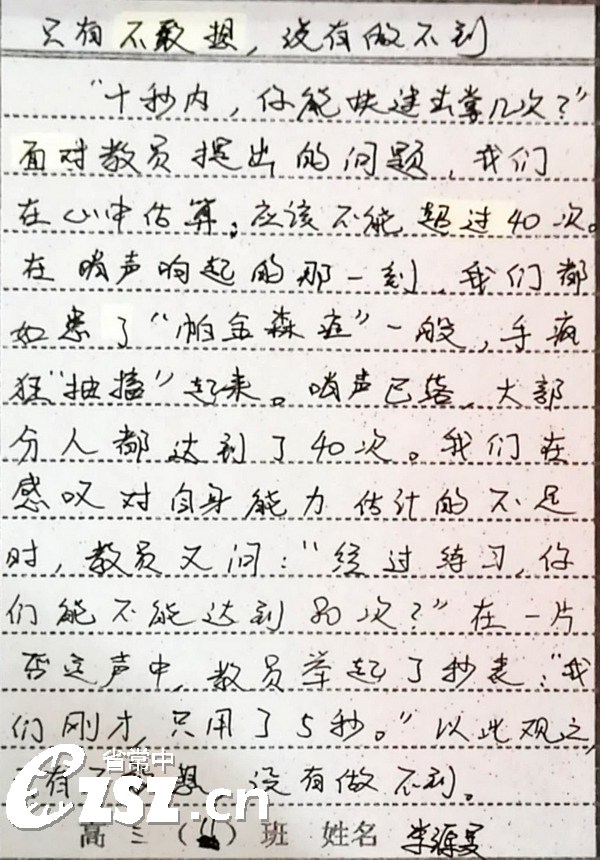 只有不敢想，没有做不到
“十秒内，你能快速击掌几次？”
面对教员提出的问题，我们
在心中估算，应该不能超过40次。
在哨声响起的那一刻，我们都
如患了“帕金森症”一般，手疯
狂“抽搐”起来。哨声已落，大部
分人都达到了40次。我们在
感叹对自身能力估计的不足
时，教员又问：“经过练习，你
们能不能达到80次？”在一片
否定声中，教员举起了秒表：“我
们刚才，只用了5秒。”以此观之，
有 想 没有做不到。
省常中
czsz.cn
高三（11）班 姓名 李源